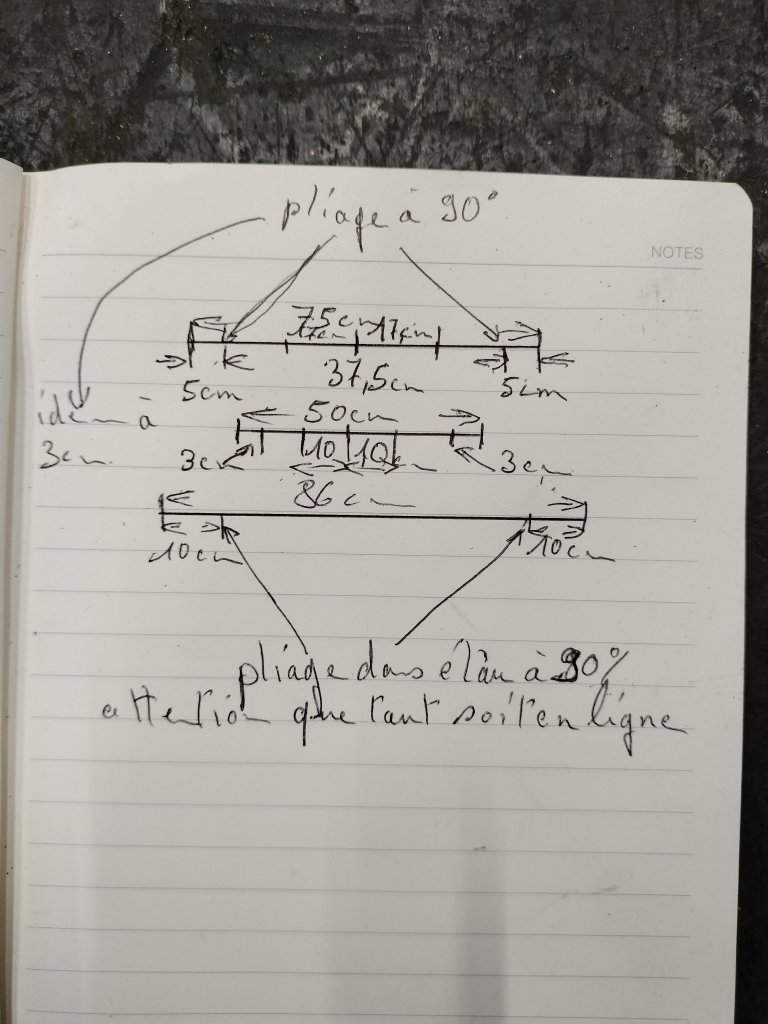 pliage à 90°
NOTES
75cm
17cm 17cm
5cm 37,5cm 5cm
idem à
3cm
50cm
3cm 10 10cm 3cm
86cm
10cm 10cm
pliage dans élau à 90%
attention que tant soit en ligne